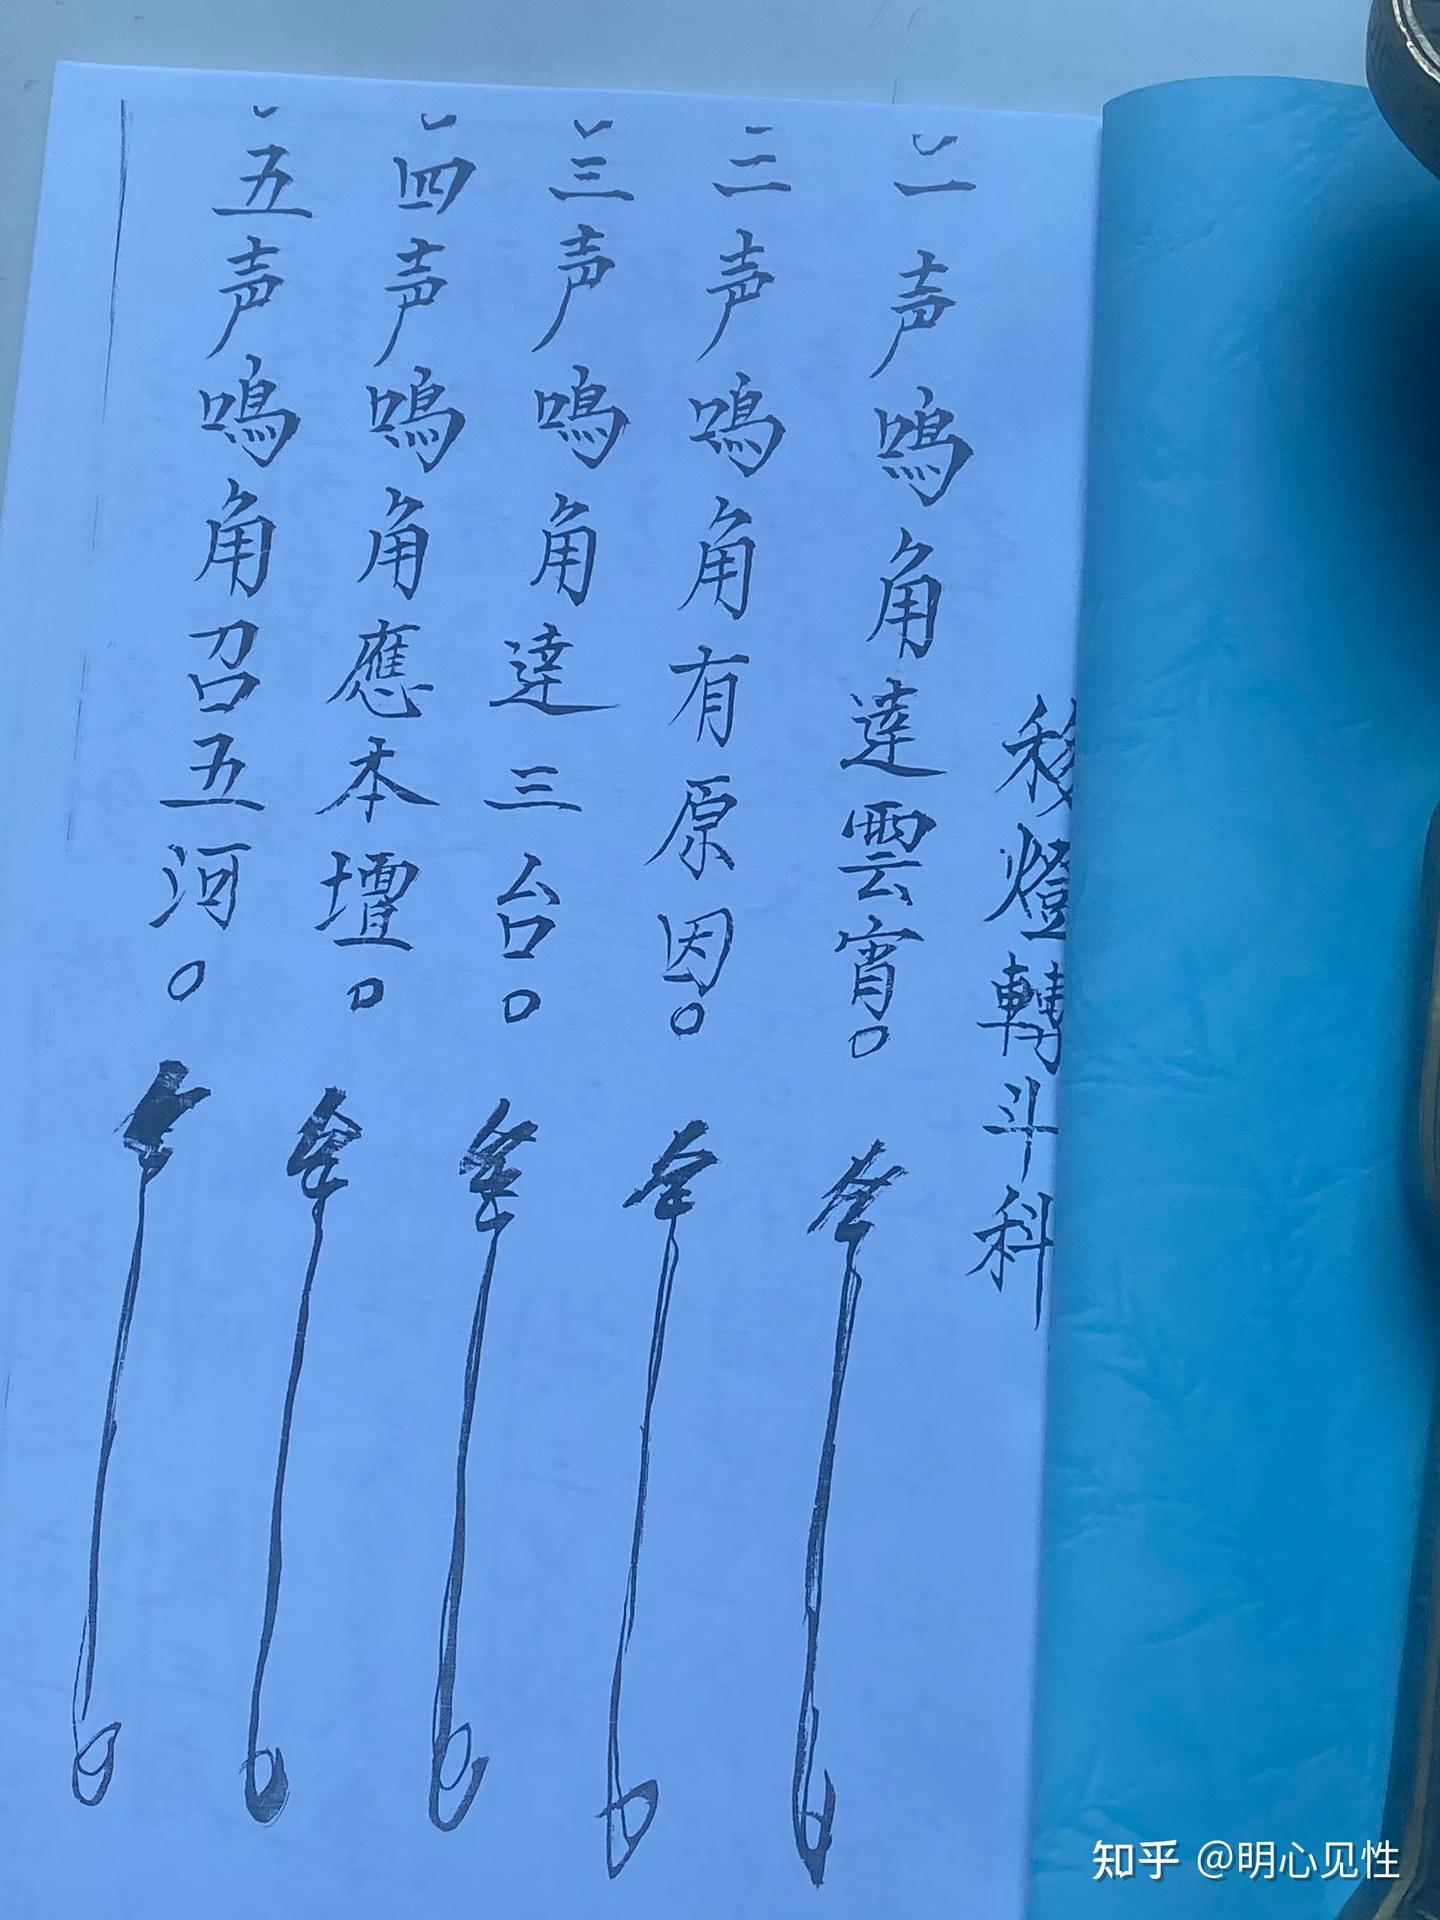 移燈轉斗科
一声鳴角達雲宵。
二声鳴角有原因。
三声鳴角達三台。
四声鳴角應本壇。
五声鳴角召五河。
知乎 @明心见性